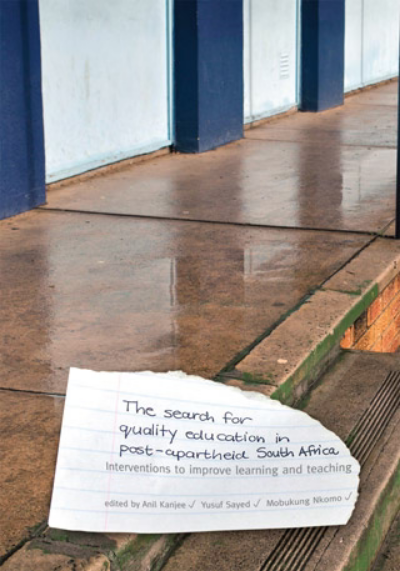 The search for
quality education in
post-apartheid South Africa
Interventions to improve learning and teaching
edited by Anil Kanjee ✓ Yusuf Sayed ✓ Mobukung Nkomo ✓